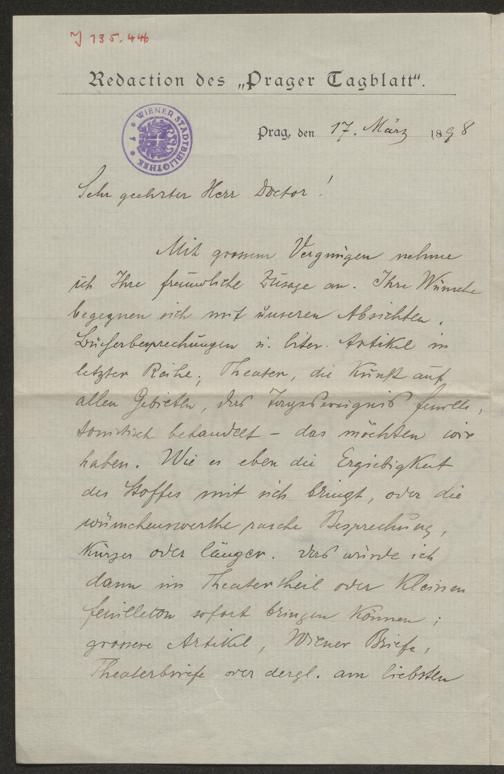 J 135.446
Redaction des „Prager Tagblatt“.
WIENER STADTBIBLIOTHEK
Prag, den 17. März 1898
Sehr geehrter Herr Doctor!
Mit grossem Vergnügen nehme
ich Ihre freundliche Zusage an. Ihre Wünsche
begegnen sich mit unseren Absichten.
Bücherbesprechungen u. liter. Artikel in
letzter Reihe; Theater, die Kunst auf
allen Gebieten, das Tagesereignis feuille,
tonistisch behandelt – das möchten wir
haben. Wie es eben die Ergiebigkeit
des Stoffes mit sich bringt, oder die
wünschenswerthe rasche Besprechung,
kürzer oder länger. Das würde ich
dann im Theatertheil oder kleinen
feuilleton sofort bringen können;
grossere Artikel, Wiener Briefe,
Theaterbriefe oder dergl. am liebsten